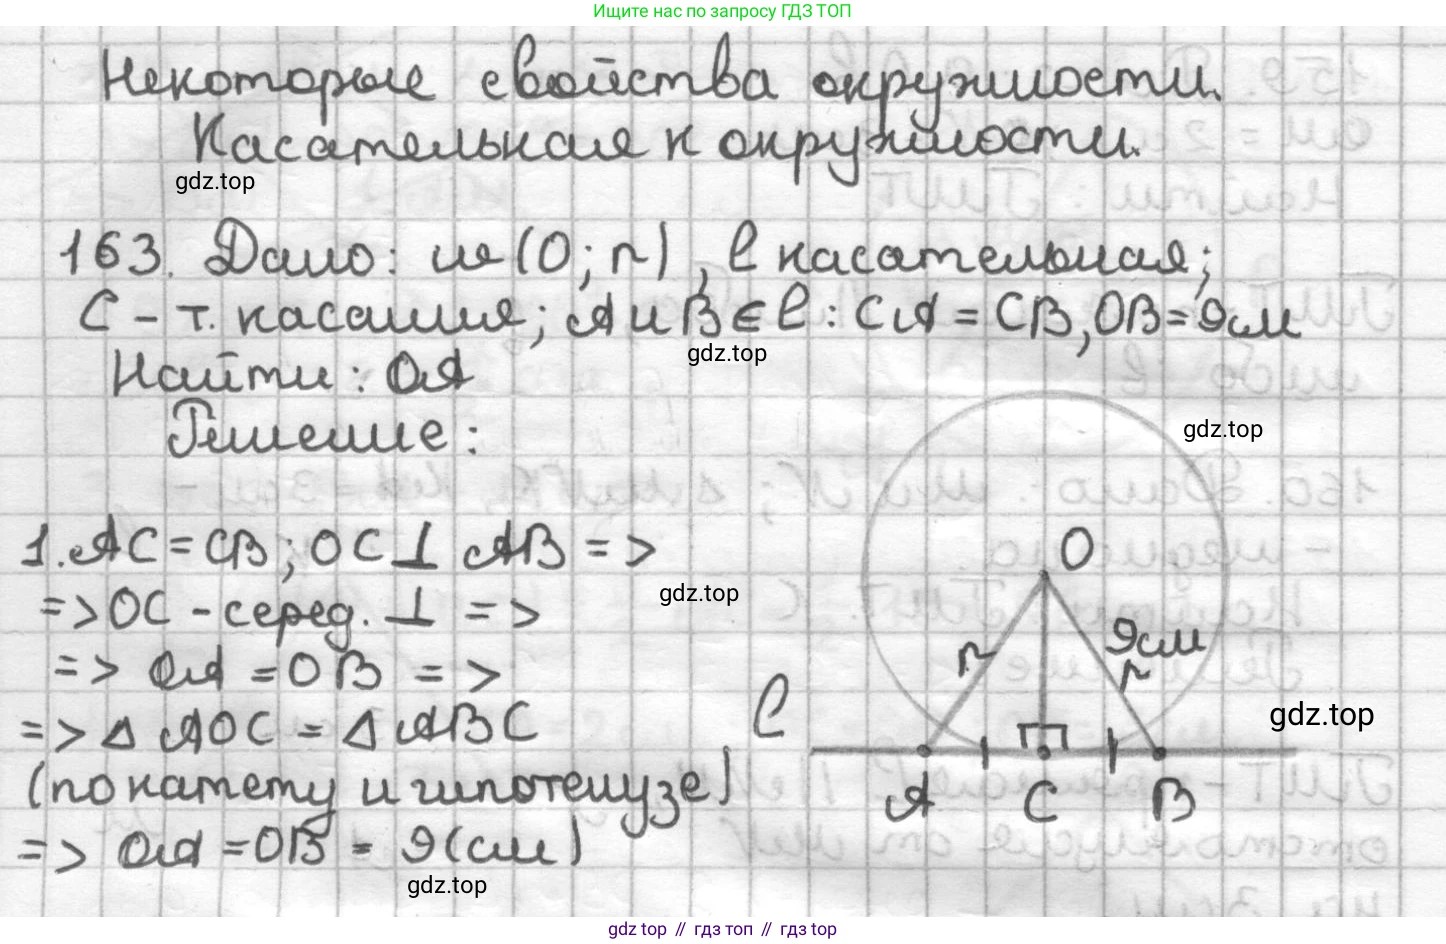 Ищите нас по запросу ГДЗ ТОП
Некоторые свойства окружности.
Касательная к окружности.
gdz.top
163. Дано: (O; r), l касательная;
C - т. касания; A и B ∈ l : CA = CB, OB = 9см
gdz.top
Найти: OA
gdz.top
Решение:
1. AC = CB; OC ⊥ AB =>
gdz.top
=> OC - серед. ⊥ =>
=> OA = OB =>
=> Δ AOC = Δ ABC
(по катету и гипотенузе)
=> OA = OB = 9(см)
gdz.top
O
r
9см
r
l
gdz.top
A C B
gdz.top // гдз топ // гдз top